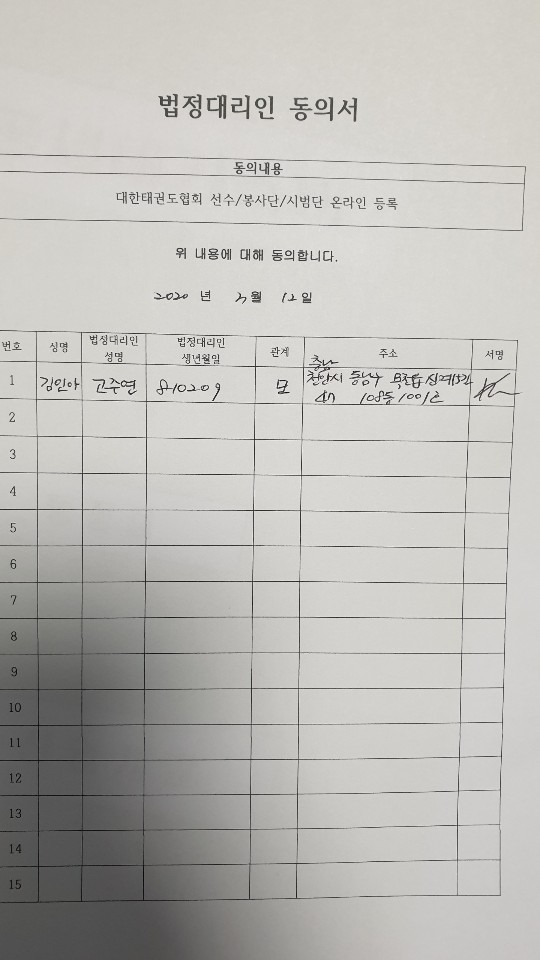 법정대리인 동의서
동의내용
대한태권도협회 선수/봉사단/시범단 온라인 등록
위 내용에 대해 동의합니다.
2020 년 3월 12일
번호 성명 법정대리인 성명 법정대리인 생년월일 관계 주소 서명
충남
1 김인아 고주연 810209 모 천안시 동남구 목천읍
108동 1001호
2
3
4
5
6
7
8
9
10
11
12
13
14
15